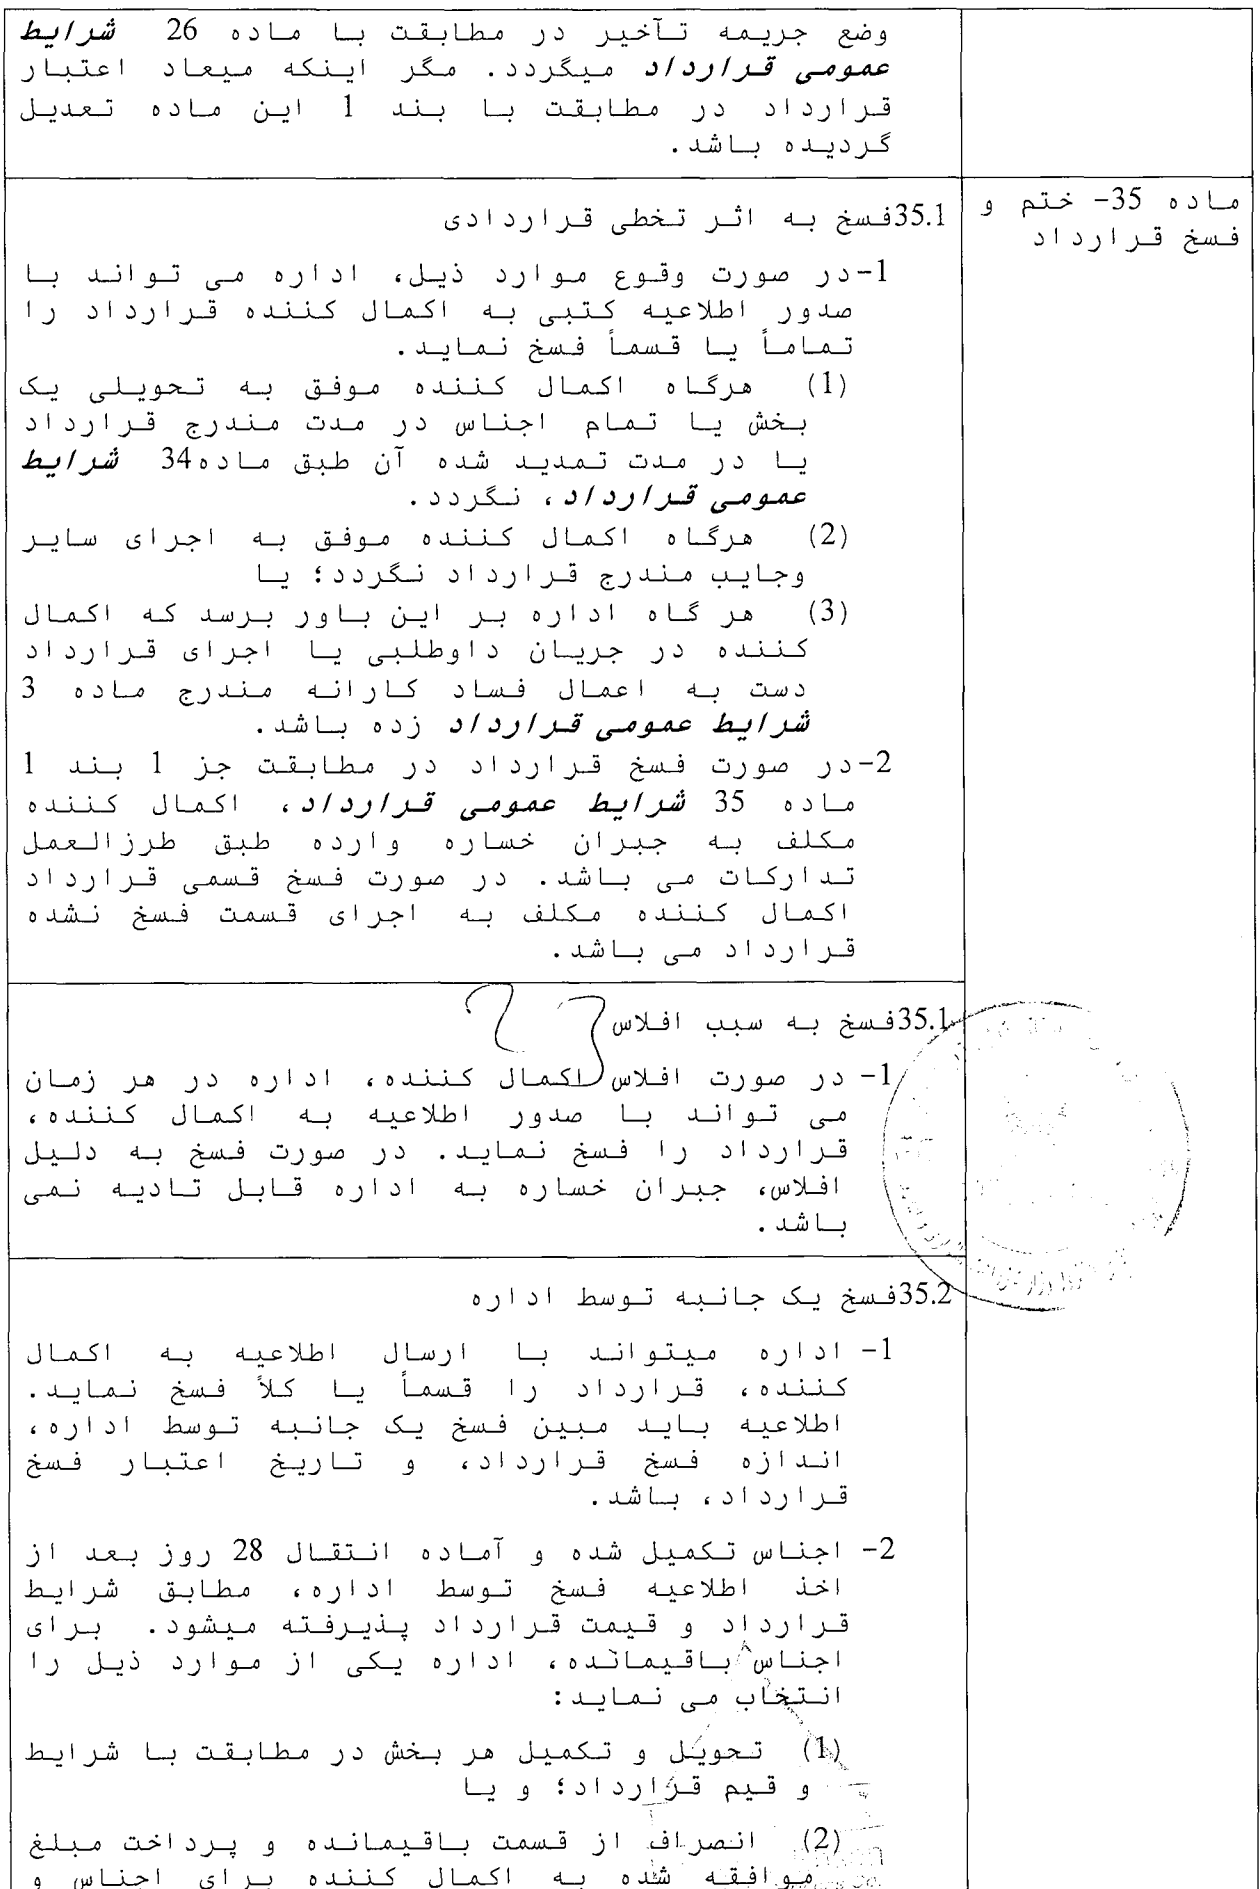 وضع جریمه تآخیر در مطابقت با ماده 26 شرایط
عمومی قرارداد میگردد. مگر اینکه میعاد اعتبار
قرارداد در مطابقت با بند 1 این ماده تعدیل
گردیده باشد.
ماده 35- ختم و
فسخ قرارداد
35.1فسخ به اثر تخطی قراردادی
1-در صورت وقوع موارد ذیل، اداره می تواند با
صدور اطلاعیه کتبی به اکمال کننده قرارداد را
تماماً یا قسماً فسخ نماید.
(1) هرگاه اکمال کننده موفق به تحویلی یک
بخش یا تمام اجناس در مدت مندرج قرارداد
یا در مدت تمدید شده آن طبق ماده34 شرایط
عمومی قرارداد، نگردد.
(2) هرگاه اکمال کننده موفق به اجرای سایر
وجایب مندرج قرارداد نگردد؛ یا
(3) هر گاه اداره بر این باور برسد که اکمال
کننده در جریان داوطلبی یا اجرای قرارداد
دست به اعمال فساد کارانه مندرج ماده 3
شرایط عمومی قرارداد زده باشد.
2-در صورت فسخ قرارداد در مطابقت جز 1 بند 1
ماده 35 شرایط عمومی قرارداد، اکمال کننده
مکلف به جبران خساره وارده طبق طرزالعمل
تدارکات می باشد. در صورت فسخ قسمی قرارداد
اکمال کننده مکلف به اجرای قسمت فسخ نشده
قرارداد می باشد.
35.1فسخ به سبب افلاس
1- در صورت افلاس اکمال کننده، اداره در هر زمان
می تواند با صدور اطلاعیه به اکمال کننده،
قرارداد را فسخ نماید. در صورت فسخ به دلیل
افلاس، جبران خساره به اداره قابل تادیه نمی
باشد.
35.2فسخ یک جانبه توسط اداره
1- اداره میتواند با ارسال اطلاعیه به اکمال
کننده، قرارداد را قسماً یا کلاً فسخ نماید.
اطلاعیه باید مبین فسخ یک جانبه توسط اداره،
اندازه فسخ قرارداد، و تاریخ اعتبار فسخ
قرارداد، باشد.
2- اجناس تکمیل شده و آماده انتقال 28 روز بعد از
اخذ اطلاعیه فسخ توسط اداره، مطابق شرایط
قرارداد و قیمت قرارداد پذیرفته میشود. برای
اجناس باقیمانده، اداره یکی از موارد ذیل را
انتخاب می نماید:
(1) تحویل و تکمیل هر بخش در مطابقت با شرایط
و قیم قرارداد؛ و یا
(2) انصراف از قسمت باقیمانده و پرداخت مبلغ
موافقه شده به اکمال کننده برای اجناس و